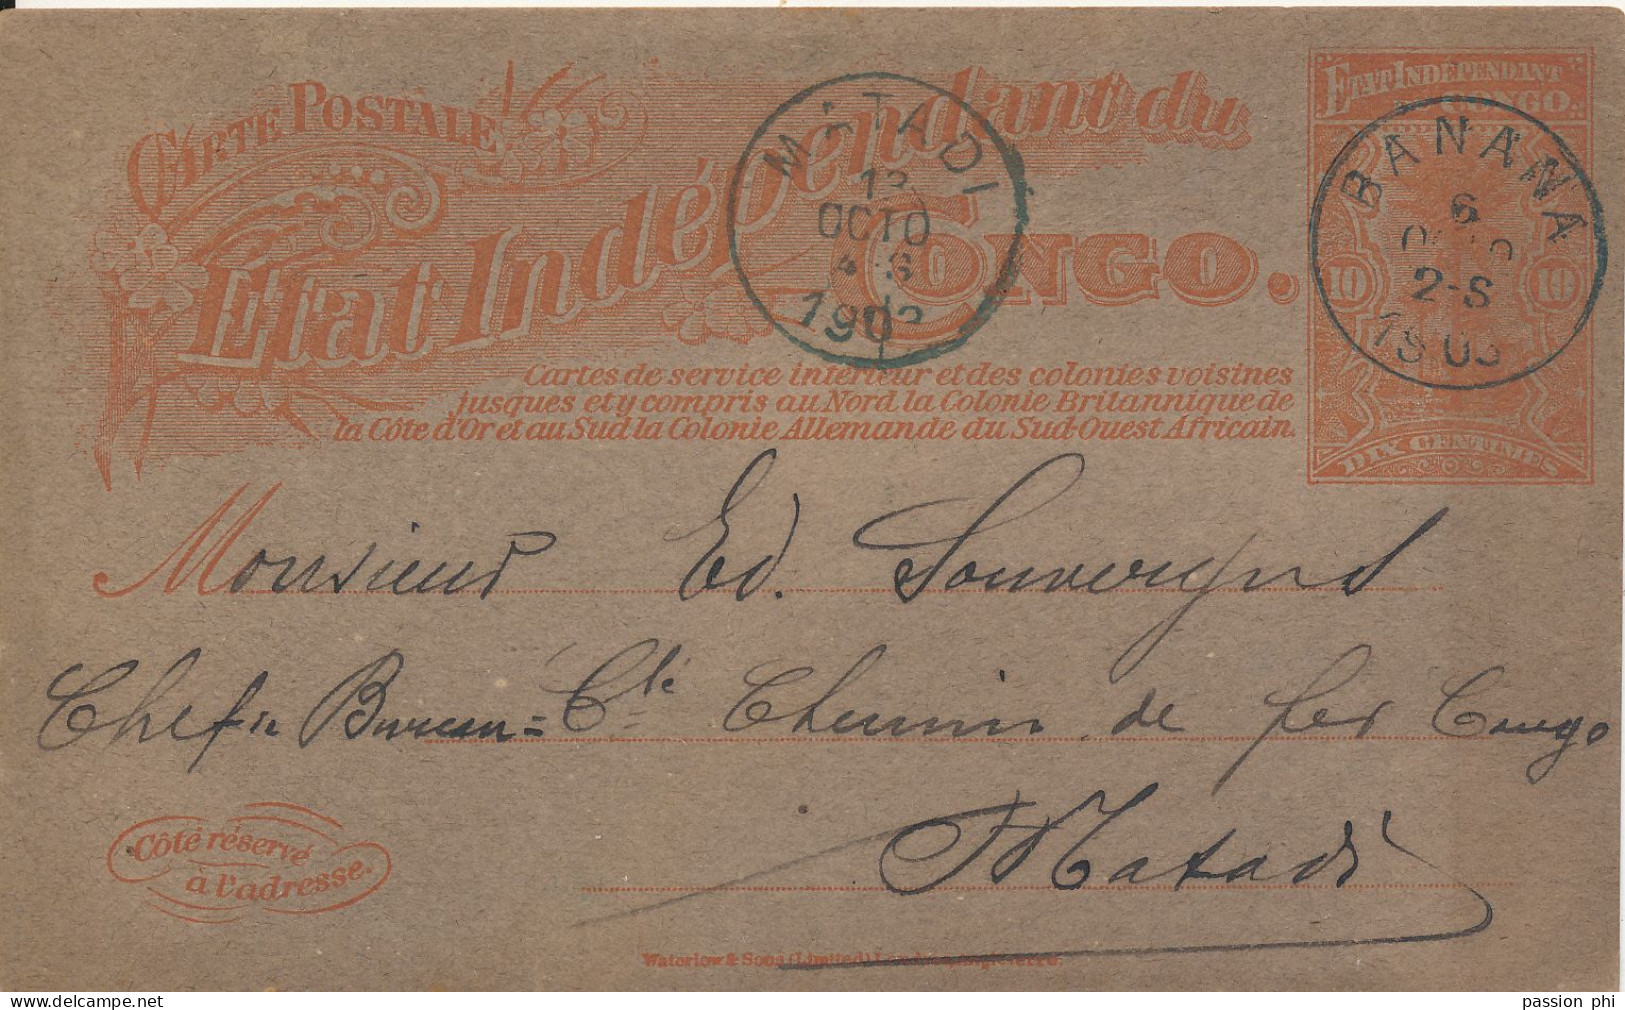 CARTE POSTALE
Etat Indépendant du
CONGO.
ETAT INDÉPENDANT
DU CONGO.
10 10
DIX CENTIMES
MATADI
OCTO
BANANA
6
2-S
Cartes de service intérieur et des colonies voisines
jusques et y compris au Nord la Colonie Britannique de
la Côte d'Or et au Sud la Colonie Allemande du Sud-Ouest Africain.
Monsieur Ed.
Chef de Bureau = Cie Chemin de fer Congo
Matadi
Côté réservé
à l'adresse.
Waterlow & Sons (Limited) Londres, Angleterre.
passion phi